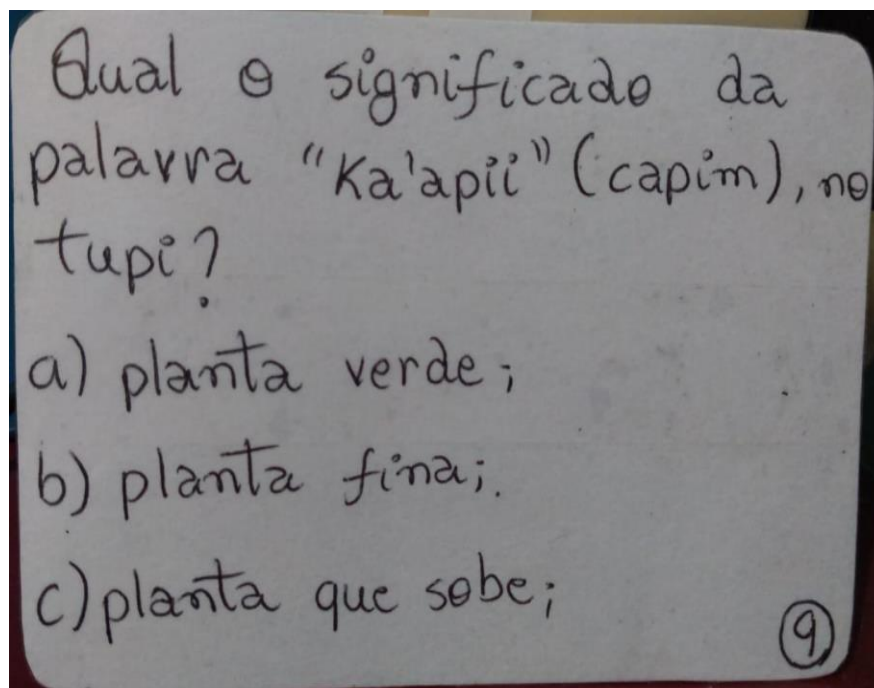 Qual o significado da
palavra "Ka'apii" (capim), no
tupi?
a) planta verde;
b) planta fina;.
c) planta que sobe;
9